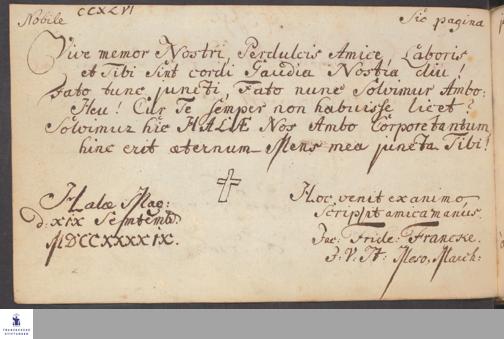 Nobile CCXLVI Sic pagina
Vive memor Nostri Perdulcis Amice, Laboris
et Tibi Sint cordi Gaudia Nostra diu!
Fato tunc juncti, Fato nunc Solvimur Ambo:
Heu! Cur Te semper non habuisse licet?
Solvimur hic HALÆ Nos Ambo Corpore tantum
hinc erit æternum Mens mea juncta Tibi!
Halæ Mag:
d. XIX Septemb.
MDCCXXXXIX.
Hoc venit ex animo
Scripsit amica manus.
Fride: Francke.
Marck:
FRANCKESCHE
STIFTUNGEN